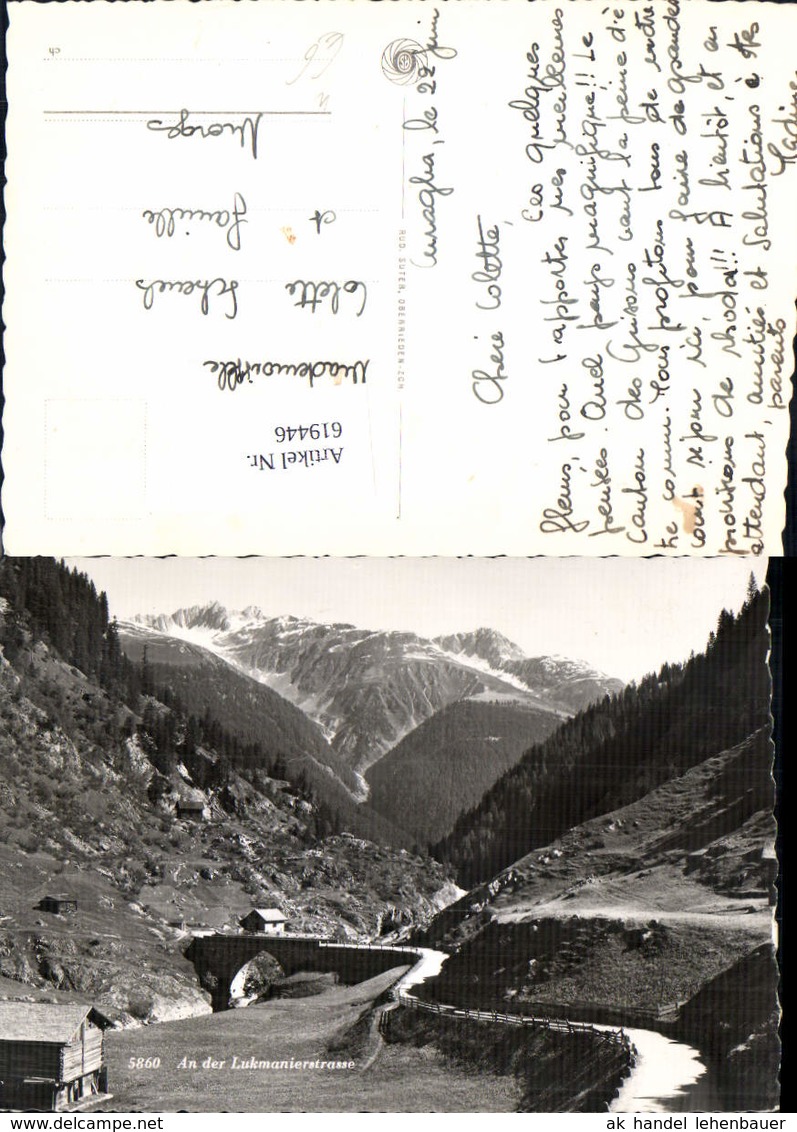 Curaglia, le 22 juin
Chère Colette,
Ces quelques
fleurs, pour t'apporter mes meilleures
pensées. Quel pays magnifique!! Le
canton des Grisons vaut la peine d'ê
tre connu. Nous profitons tous de notre
court séjour ici, pour faire de grandes
provisions de rhodo!!! A bientôt, et en
attendant, amitiés et salutations à tes
parents
Nadine
RUD. SUTER, OBERRIEDEN-ZCH
Mademoiselle
Colette Scheuels
et famille
Morges
Artikel Nr.
619446
5860 An der Lukmanierstrasse
ak handel lehenbauer